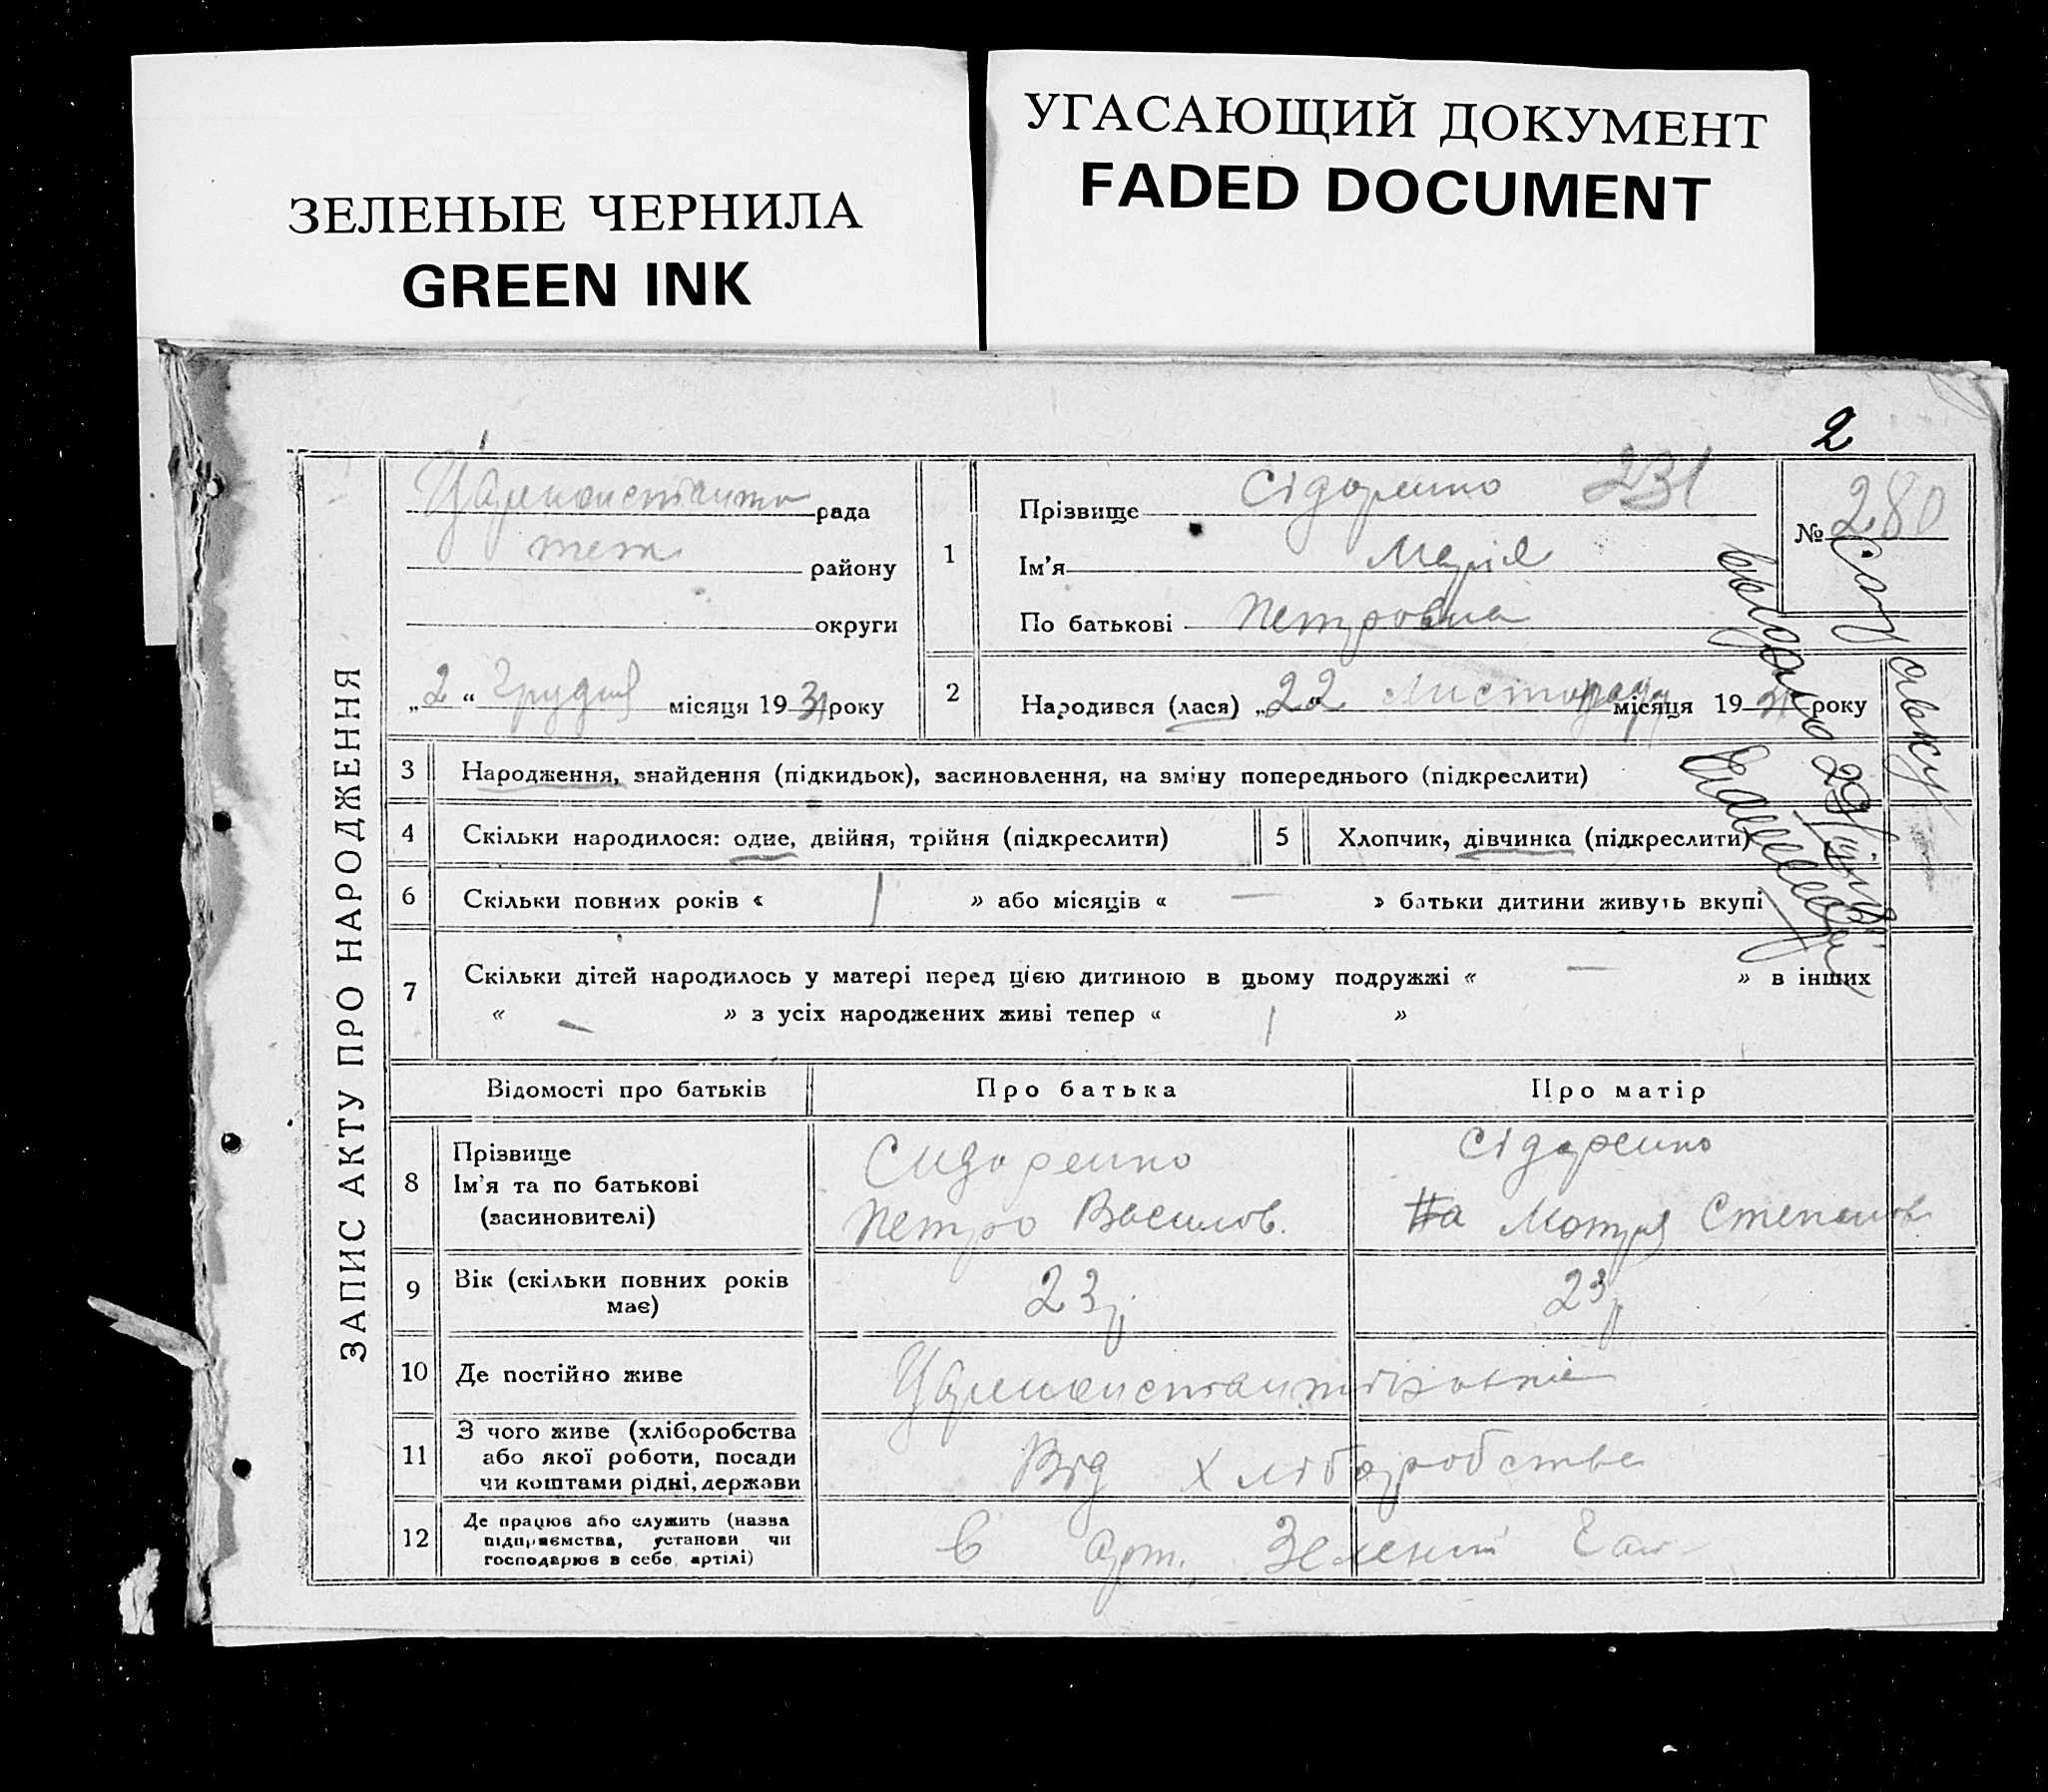 ЗЕЛЕНЫЕ ЧЕРНИЛА
GREEN INK
УГАСАЮЩИЙ ДОКУМЕНТ
FADED DOCUMENT
2
ЗАПИС АКТУ ПРО НАРОДЖЕННЯ
Царьконстант рада
теж району
округи
„2“ Грудня місяця 1931 року
1
Прізвище Сідоренко 231
Ім'я Марія
По батькові Петровна
№ 280
2 Народився (лася) „22“ Листопада місяця 1931 року
Справку
выдано 29/
3 Народження, знайдення (підкидьок), засиновлення, на зміну попереднього (підкреслити)
4 Скільки народилося: одне, двійня, трійня (підкреслити)
5 Хлопчик, дівчинка (підкреслити)
6 Скільки повних років « 1 » або місяців « — » батьки дитини живуть вкупі
7 Скільки дітей народилось у матері перед цією дитиною в цьому подружжі « — » в інших
« — » з усіх народжених живі тепер « 1 »
Відомості про батьків
Про батька
Про матір
8 Прізвище
Ім'я та по батькові
(засиновителі)
Сидоренко
Петро Васильов.
Сідоренко
Мотря Степанов
9 Вік (скільки повних років
має)
23 р.
23 р
10 Де постійно живе
Царьконстантіновкіе
11 З чого живе (хліборобства
або якої роботи, посади
чи коштами рідні, держави
Від хліборобства
12 Де працює або служить (назва
підприємства, установи чи
господарює в себе, артілі)
в арт. Зелений Гай